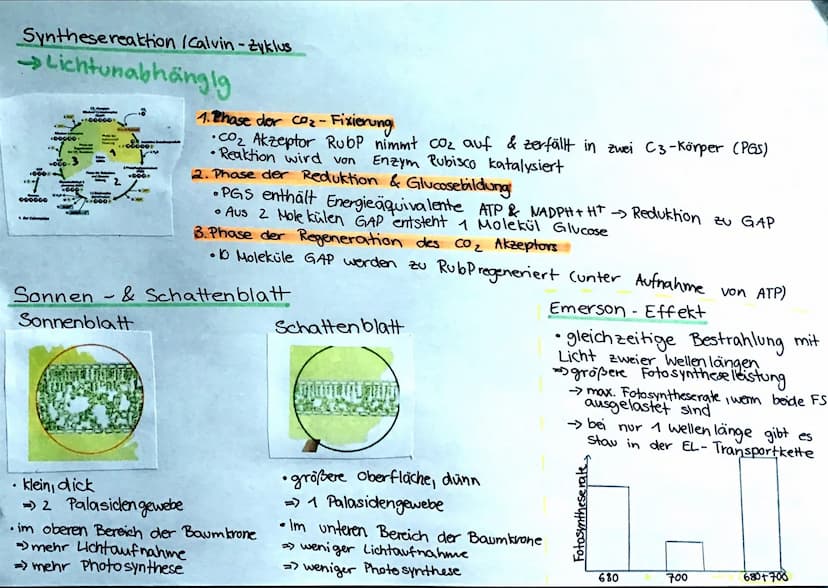 Synthesereaktion / Calvin-Zyklus
→ Lichtunabhängig
1. Phase der CO₂-Fixierung
• CO₂ Akzeptor RubP nimmt CO₂ auf & zerfällt in zwei C3-Körper (PGS)
• Reaktion wird von Enzym Rubisco katalysiert
2. Phase der Reduktion & Glucosebildung
• PGS enthält Energieäquivalente ATP & NADPH+H⁺ → Reduktion zu GAP
• Aus 2 Molekülen GAP entsteht 1 Molekül Glucose
3. Phase der Regeneration des CO₂ Akzeptors
• 10 Moleküle GAP werden zu RubP regeneriert (unter Aufnahme von ATP)
3
1
2
Sonnen- & Schattenblatt
Sonnenblatt
• klein, dick
⇒ 2 Palasidengewebe
• im oberen Bereich der Baumkrone
⇒ mehr Lichtaufnahme
⇒ mehr Photosynthese
Schattenblatt
• größere Oberfläche, dünn
⇒ 1 Palasidengewebe
• Im unteren Bereich der Baumkrone
⇒ weniger Lichtaufnahme
⇒ weniger Photosynthese
Emerson-Effekt
• gleichzeitige Bestrahlung mit
Licht zweier Wellenlängen
⇒ größere Fotosyntheseleistung
→ max. Fotosyntheserate, wenn beide FS
ausgelastet sind
→ bei nur 1 Wellenlänge gibt es
Stau in der EL-Transportkette
Fotosyntheserate
680
700
680+700